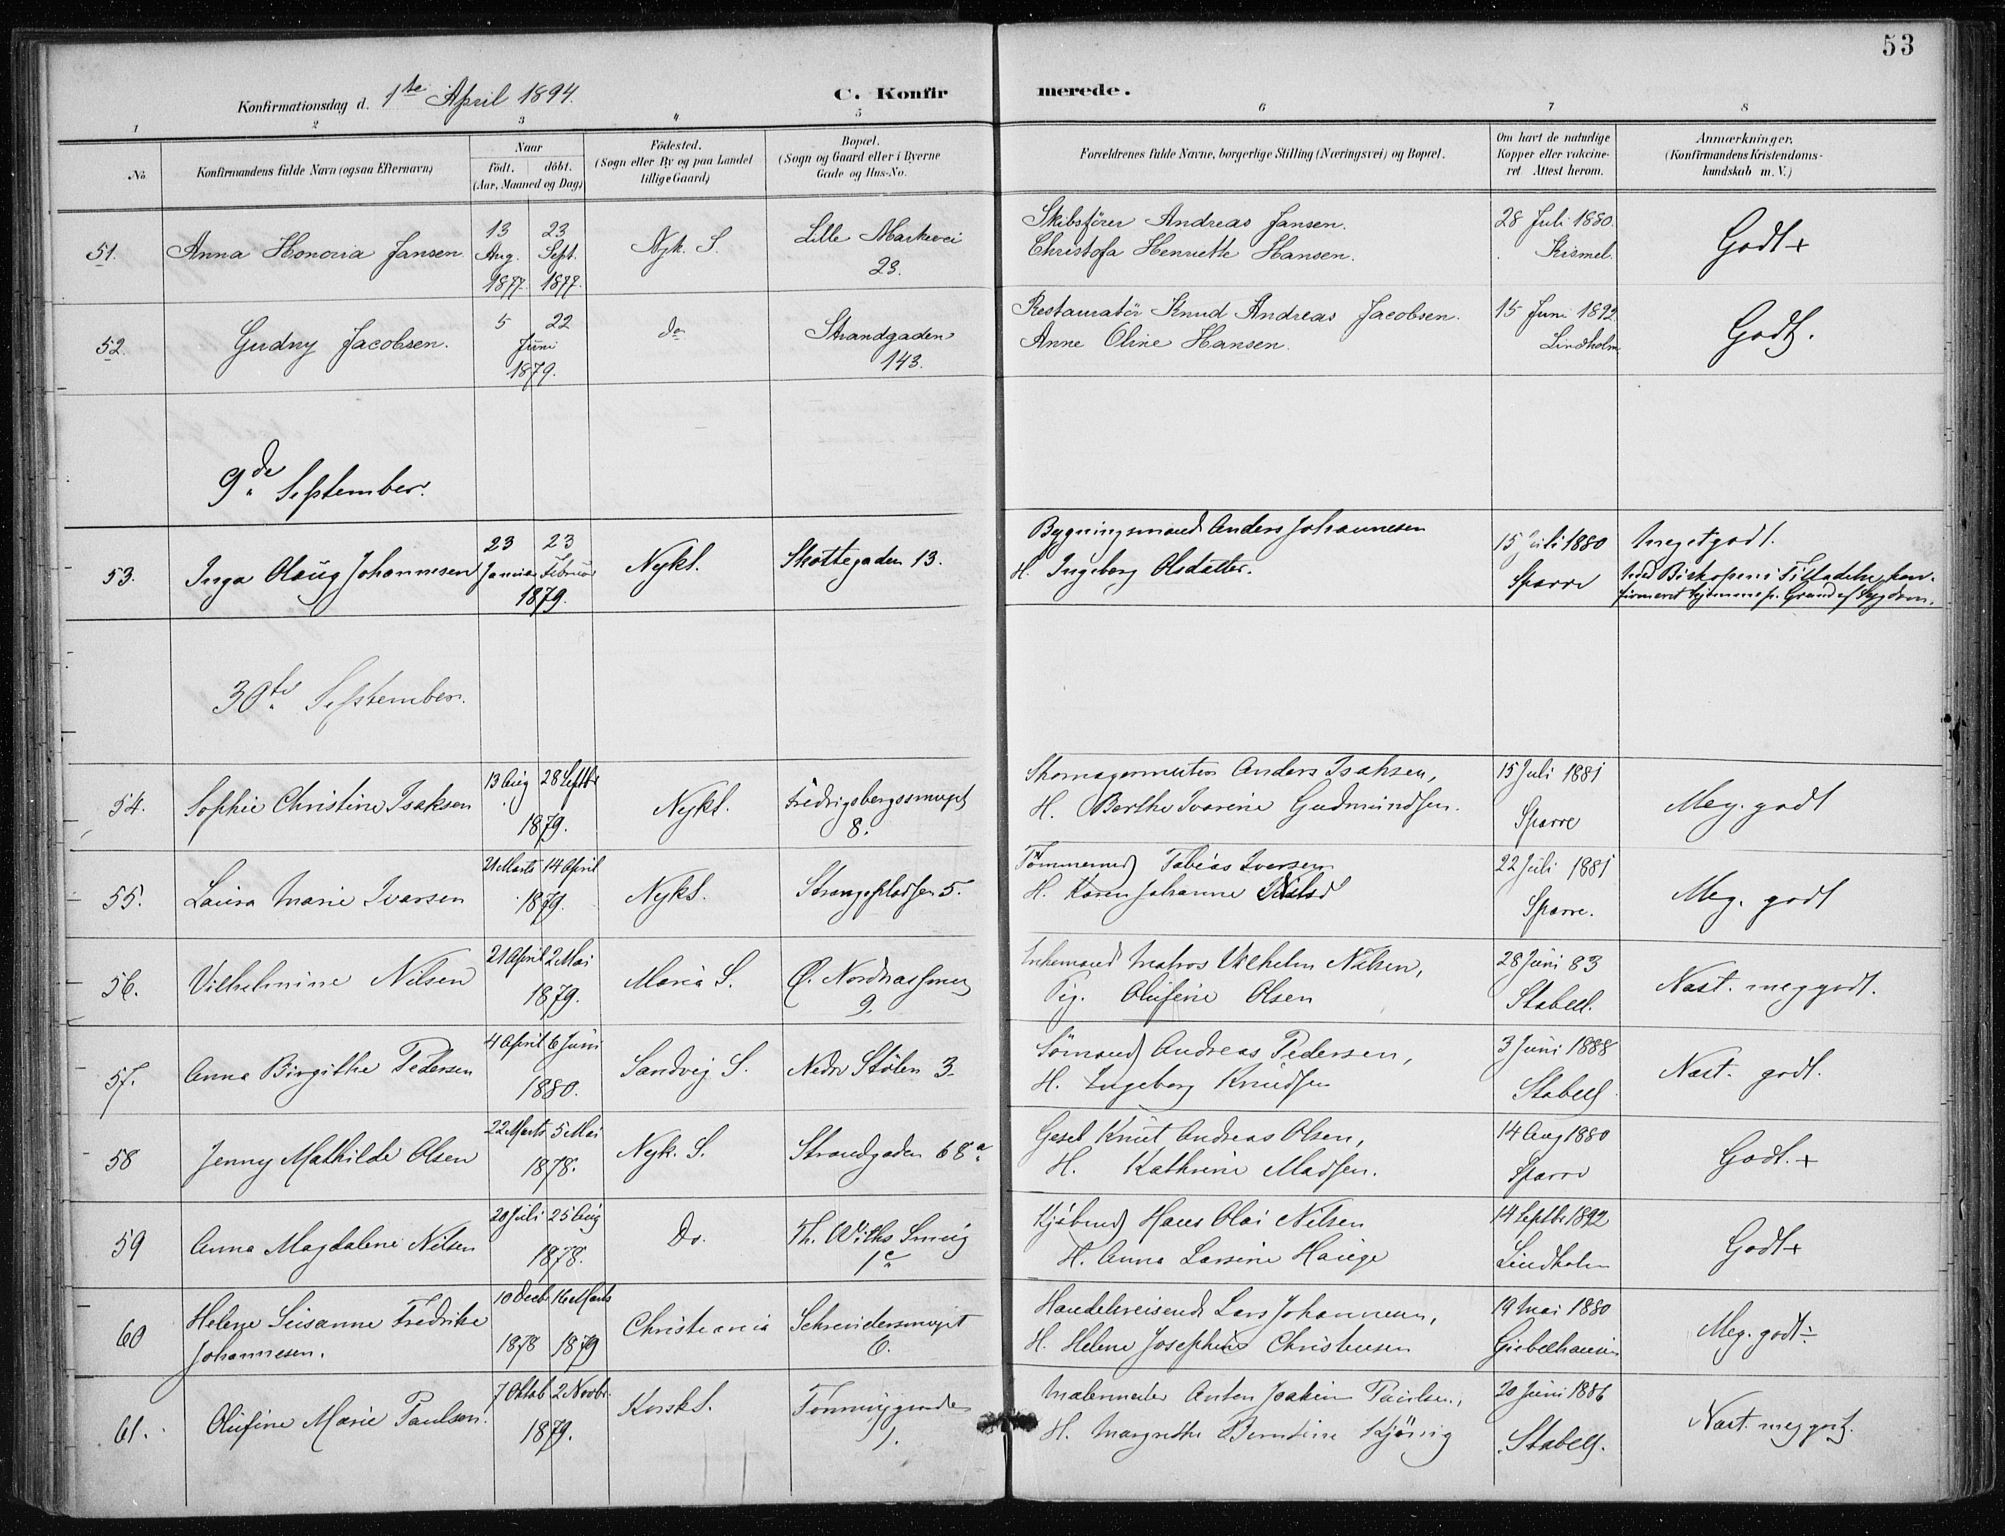 53
Konfirmationsdag d. 1ste April 1894.
C. Konfir
merede.
1 2 3 4 5 6 7 8
No
Konfirmandens fulde Navn (ogsaa Efternavn)
Naar
födt.
döbt.
(Aar, Maaned og Dag)
Födested.
(Sogn eller By og paa Landet
tillige Gaard)
Bopæl.
(Sogn og Gaard eller i Byerne
Gade og Hus-No.
Forældrenes fulde Navne, borgerlige Stilling (Næringsvei) og Bopæl.
Om havt de naturlige
Kopper eller vakcine-
ret Attest herom.
Anmærkninger.
(Konfirmandens Kristendoms-
kundskab m. V.)
51.
Anna Honoria Jansen
13 Aug. 1877.
23 Sept. 1877.
Nyk. S.
Lille Markevei
23.
Skibsfører Andreas Jansen.
Christofa Henriette Hansen.
28 Juli 1880.
Godt +
52.
Gudny Jacobsen.
5 22
Juni
1879.
do
Strandgaden
143.
Restauratør Knud Andreas Jacobsen.
Anne Oline Hansen.
15 Juni 1892
Lindholm
Godt.
9de September.
53.
Inga Olaug Johannesen
23 Januar
23 Februar
1879.
Nykl.
Skottegaden 13.
Bygningsmand Anders Johannesen
H. Ingeborg Olsdatter.
15 Juli 1880
Sparre
Meget godt.
ved Biskopens Tilladelse kon-
firmeret hjemme p. Grund af Sygdom.
30te September.
54.
Sophie Christine Isaksen
13 Aug 28 Septbr
1879.
Nykl.
Fredrigsbergssmuget
8.
Skomagermester Anders Isaksen,
H. Berthe Ivarine Gudmundsen.
15 Juli 1881
Sparre
Meg. godt
55.
Laura Marie Ivarsen
21 Marts 14 April
1879.
Nykl.
Strangepladsen 5.
Tømmermd Tobias Ivarsen
H. Karen Johanne
22 Juli 1881
Sparre.
Meg. godt
56.
Vilhelmine Nilsen
21 April 2 Mai
1879.
Maria S.
9.
Matros Vilhelm Nilsen,
Pig. Olufine Olsen
28 Juni 83
Stabell.
Næst. meg godt.
57.
Anna Birgithe Pedersen
4 April 6 Juni
1880.
Sandvig S.
Nedre Stølen 3.
Sømand Andreas Pedersen,
H. Ingeborg Knudsen
3 Juni 1888
Stabell
Næst. godt.
58
Jenny Mathilde Olsen
22 Marts 5 Mai
1878.
Nyk. S.
Strandgaden 68a
Gesel Knut Andreas Olsen,
H. Kathrine Madsen.
14 Aug 1880
Sparre
Godt. +
59
Anna Magdalene Nilsen
20 Juli 25 Aug
1878.
Do.
Th. Withs Smug
1c
Kjøbmd Hans Olai Nilsen
H. Anna Larsine Hauge
14 Septbr 1892
Lindholm
Godt +
60
Helene Susanne Fredrike
Johannesen.
10 Decbr 16 Marts
1878 1879
Christiania
Schreudersmuget
6.
Handelsreisende Lars Johannesen,
H. Helene Josephine Christensen
19 Mai 1880
Giebelhausen
Meg. godt ÷
61.
Olufine Marie Paulsen.
7 Oktob 2 Novbr
1879.
Korsk S.
1.
Malermester Anton Joakim Paulsen,
H. Margrethe Berntine Kjønig
20 Juni 1886
Stabell.
Næst. meg godt.